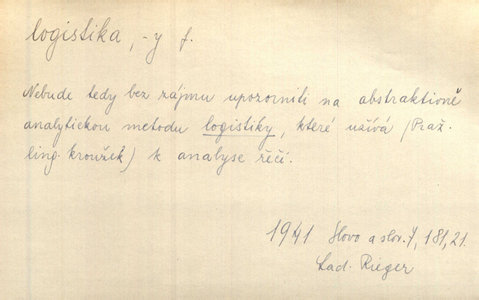 logistika, -y f.
Nebude tedy bez zájmu upozorniti na abstraktivně
analytickou metodu logistiky, které užívá (Praž.
ling. kroužek) k analyse řečí.
1941 Slovo a slov. 7, 181, 21.
Lad. Rieger